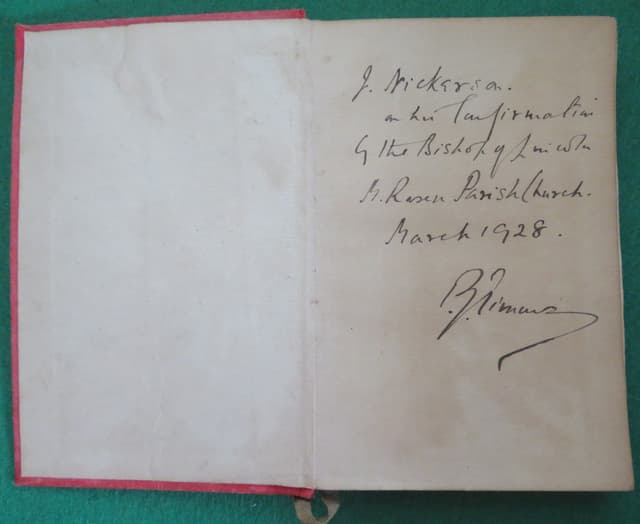 J. Nickerson.
on his Confirmation
by the Bishop of Lincoln
M. Rasen Parish Church.
March 1928.